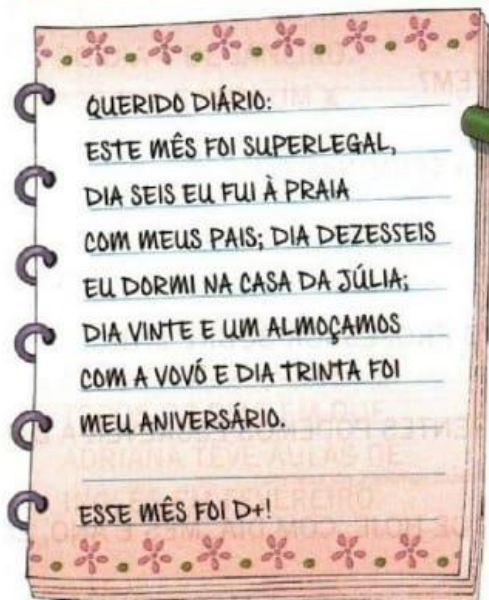 QUERIDO DIÁRIO:
ESTE MÊS FOI SUPERLEGAL,
DIA SEIS EU FUI À PRAIA
COM MEUS PAIS; DIA DEZESSEIS
EU DORMI NA CASA DA JÚLIA;
DIA VINTE E UM ALMOÇAMOS
COM A VOVÓ E DIA TRINTA FOI
MEU ANIVERSÁRIO.
ESSE MÊS FOI D+!